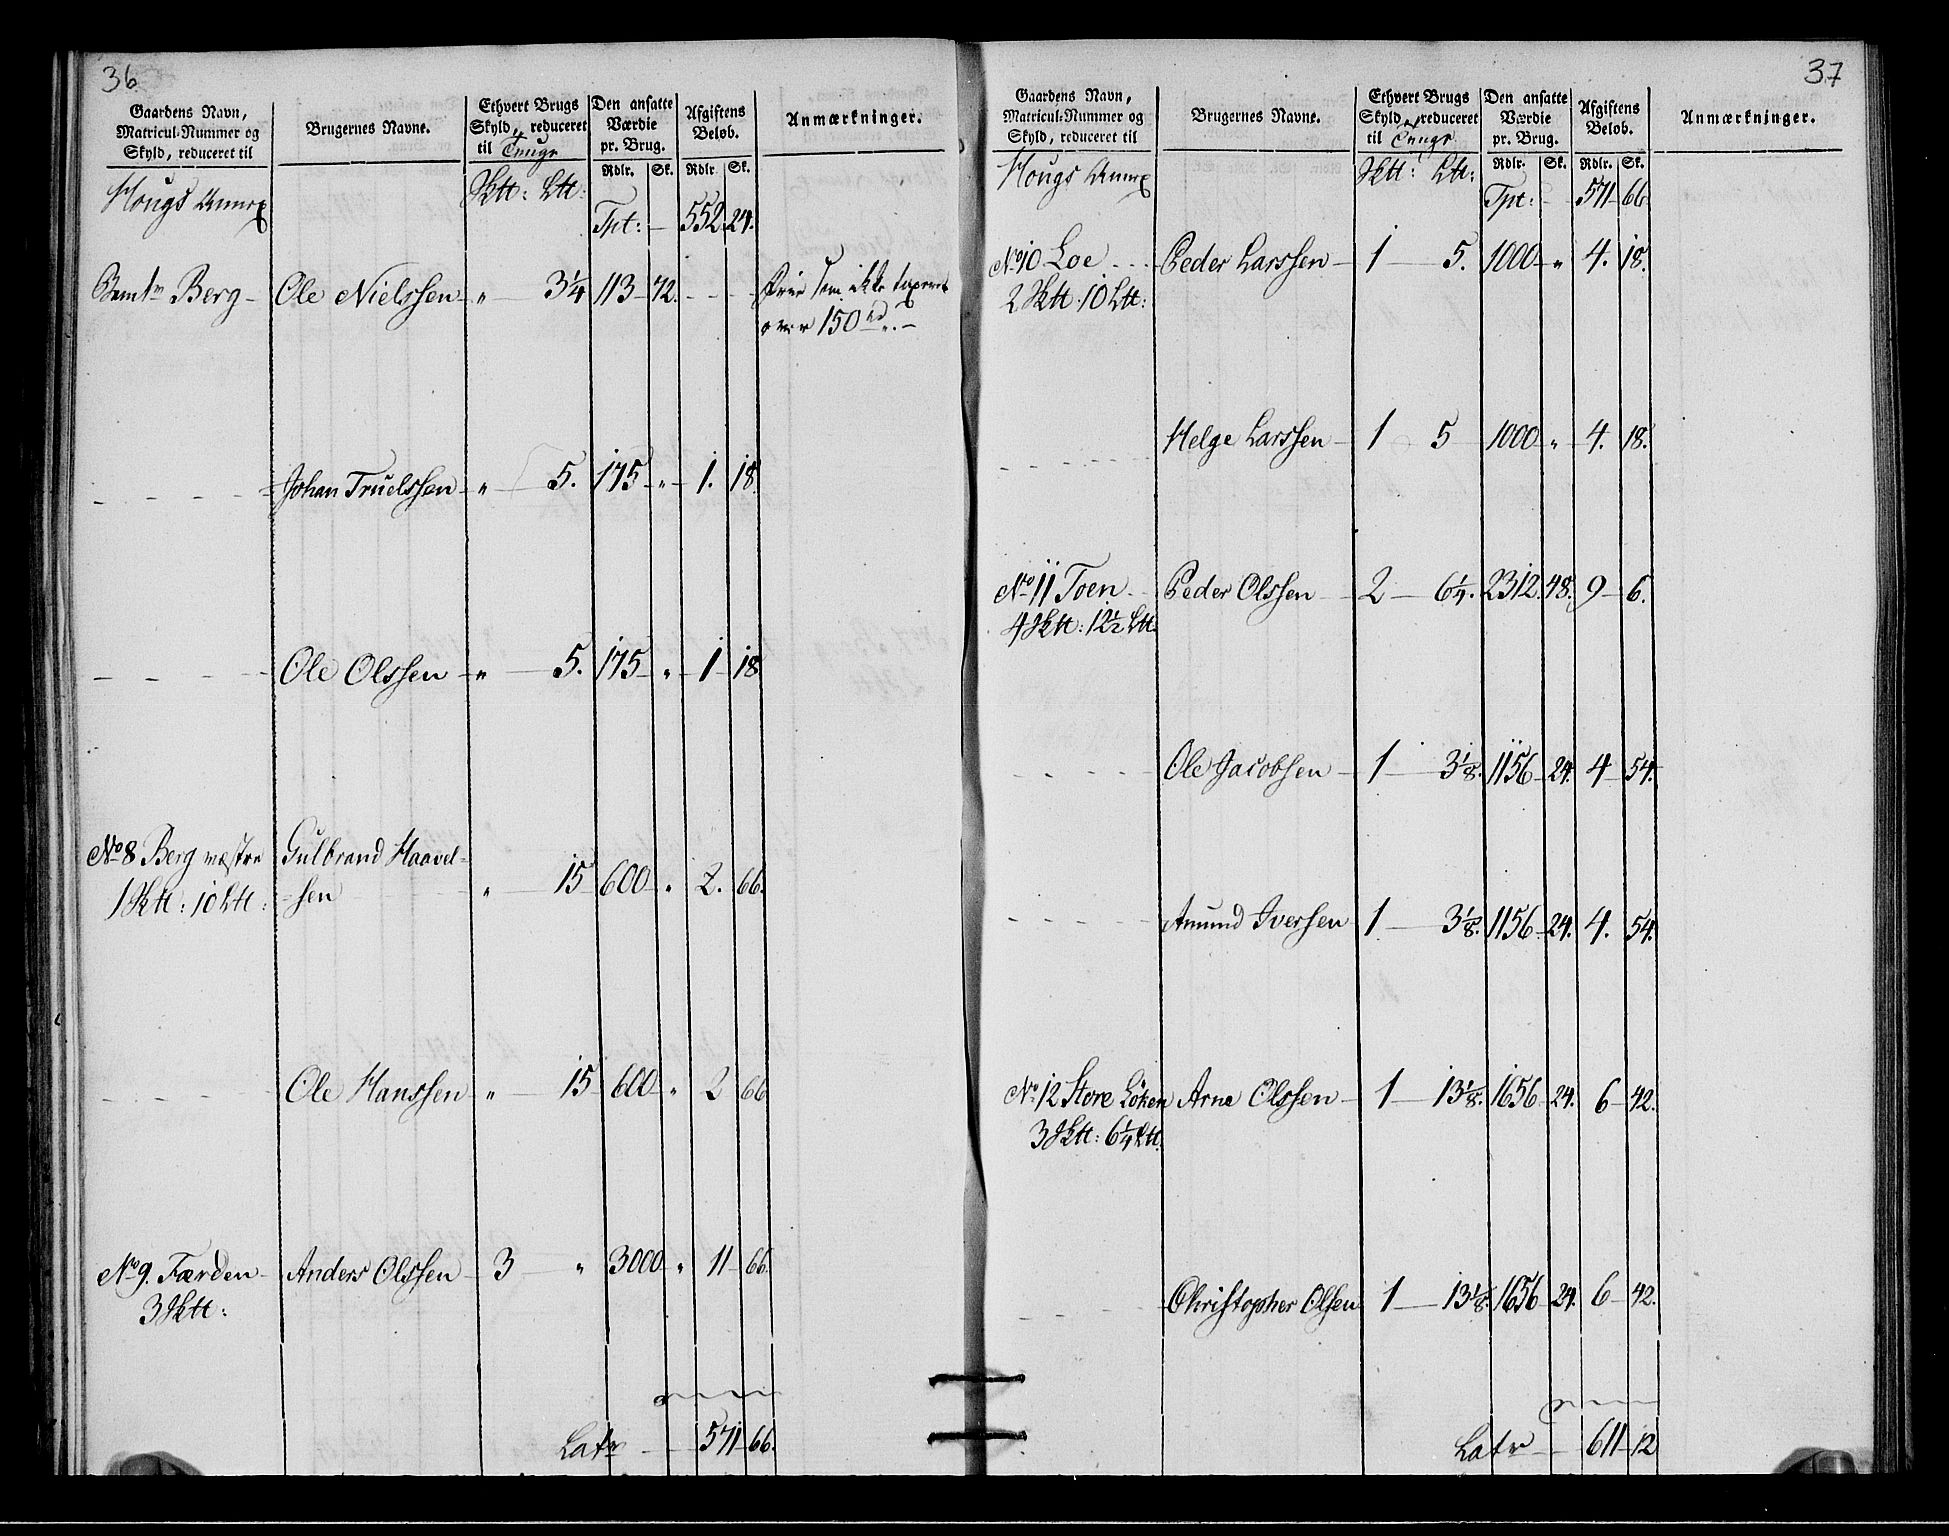 36
Gaardens Navn, Matricul-Nummer og Skyld, reduceret til
Brugernes Navne.
Ethvert Brugs Skyld, reduceret til Tunge
Den ansatte Værdie pr. Brug.
Afgiftens Beløb.
Anmærkninger.
Rdlr. Sk. Rdlr. Sk.
Hougs Annex Sktt: Ltt: Tpt: — 552 24.
Berg — Ole Nielssen — „ 3¼ 113 — 72. — — Frie som ikke taxeret
over 150 rd. —
— — — Johan Truelssen — „ — 5. 175 — „ — 1. 18.
— — — Ole Olssen — „ — 5. 175 — „ — 1 — 18
No 8 Berg næstre Gulbrand Haavel-
1 Sktt: 10 Ltt: -sen „ — 15 600 — „ 2. 66.
— — — Ole Hanssen „ — 15 600 — „ 2 66
No 9. Færden — Anders Olssen — 3 — „ 3000 „ 11 — 66.
3 Sktt:
Latr — — 571 — 66.
37
Gaardens Navn, Matricul-Nummer og Skyld, reduceret til
Brugernes Navne.
Ethvert Brugs Skyld, reduceret til Tunge
Den ansatte Værdie pr. Brug.
Afgiftens Beløb.
Anmærkninger.
Rdlr. Sk. Rdlr. Sk.
Hougs Annex Sktt: Ltt: Tpt: — 571 — 66.
No 10 Loe — — — Peder Larssen — 1 — 5. 1000 — „ 4. 18.
2 Sktt: 10 Ltt:
— — — Helge Larssen — 1 5 1000 — „ — 4. 18.
No 11 Toen — Peder Olssen — 2 — 6¼. 2312. 48. 9 — 6.
4 Sktt: 12½ Ltt.
— — — Ole Jacobsen — 1 — 3⅛. 1156 — 24. 4 — 54.
— — — Amund Iversen — 1 — 3⅛. 1156 — 24. 4. 54.
No 12 Store Löken Arne Olssen — 1 — 13⅛. 1656 — 24. 6 — 42.
3 Sktt: 6¼ Ltt.
— — — Christopher Olsen 1 — 13⅛. 1656 — 24. 6 — 42.
Latr — — 611 — 12